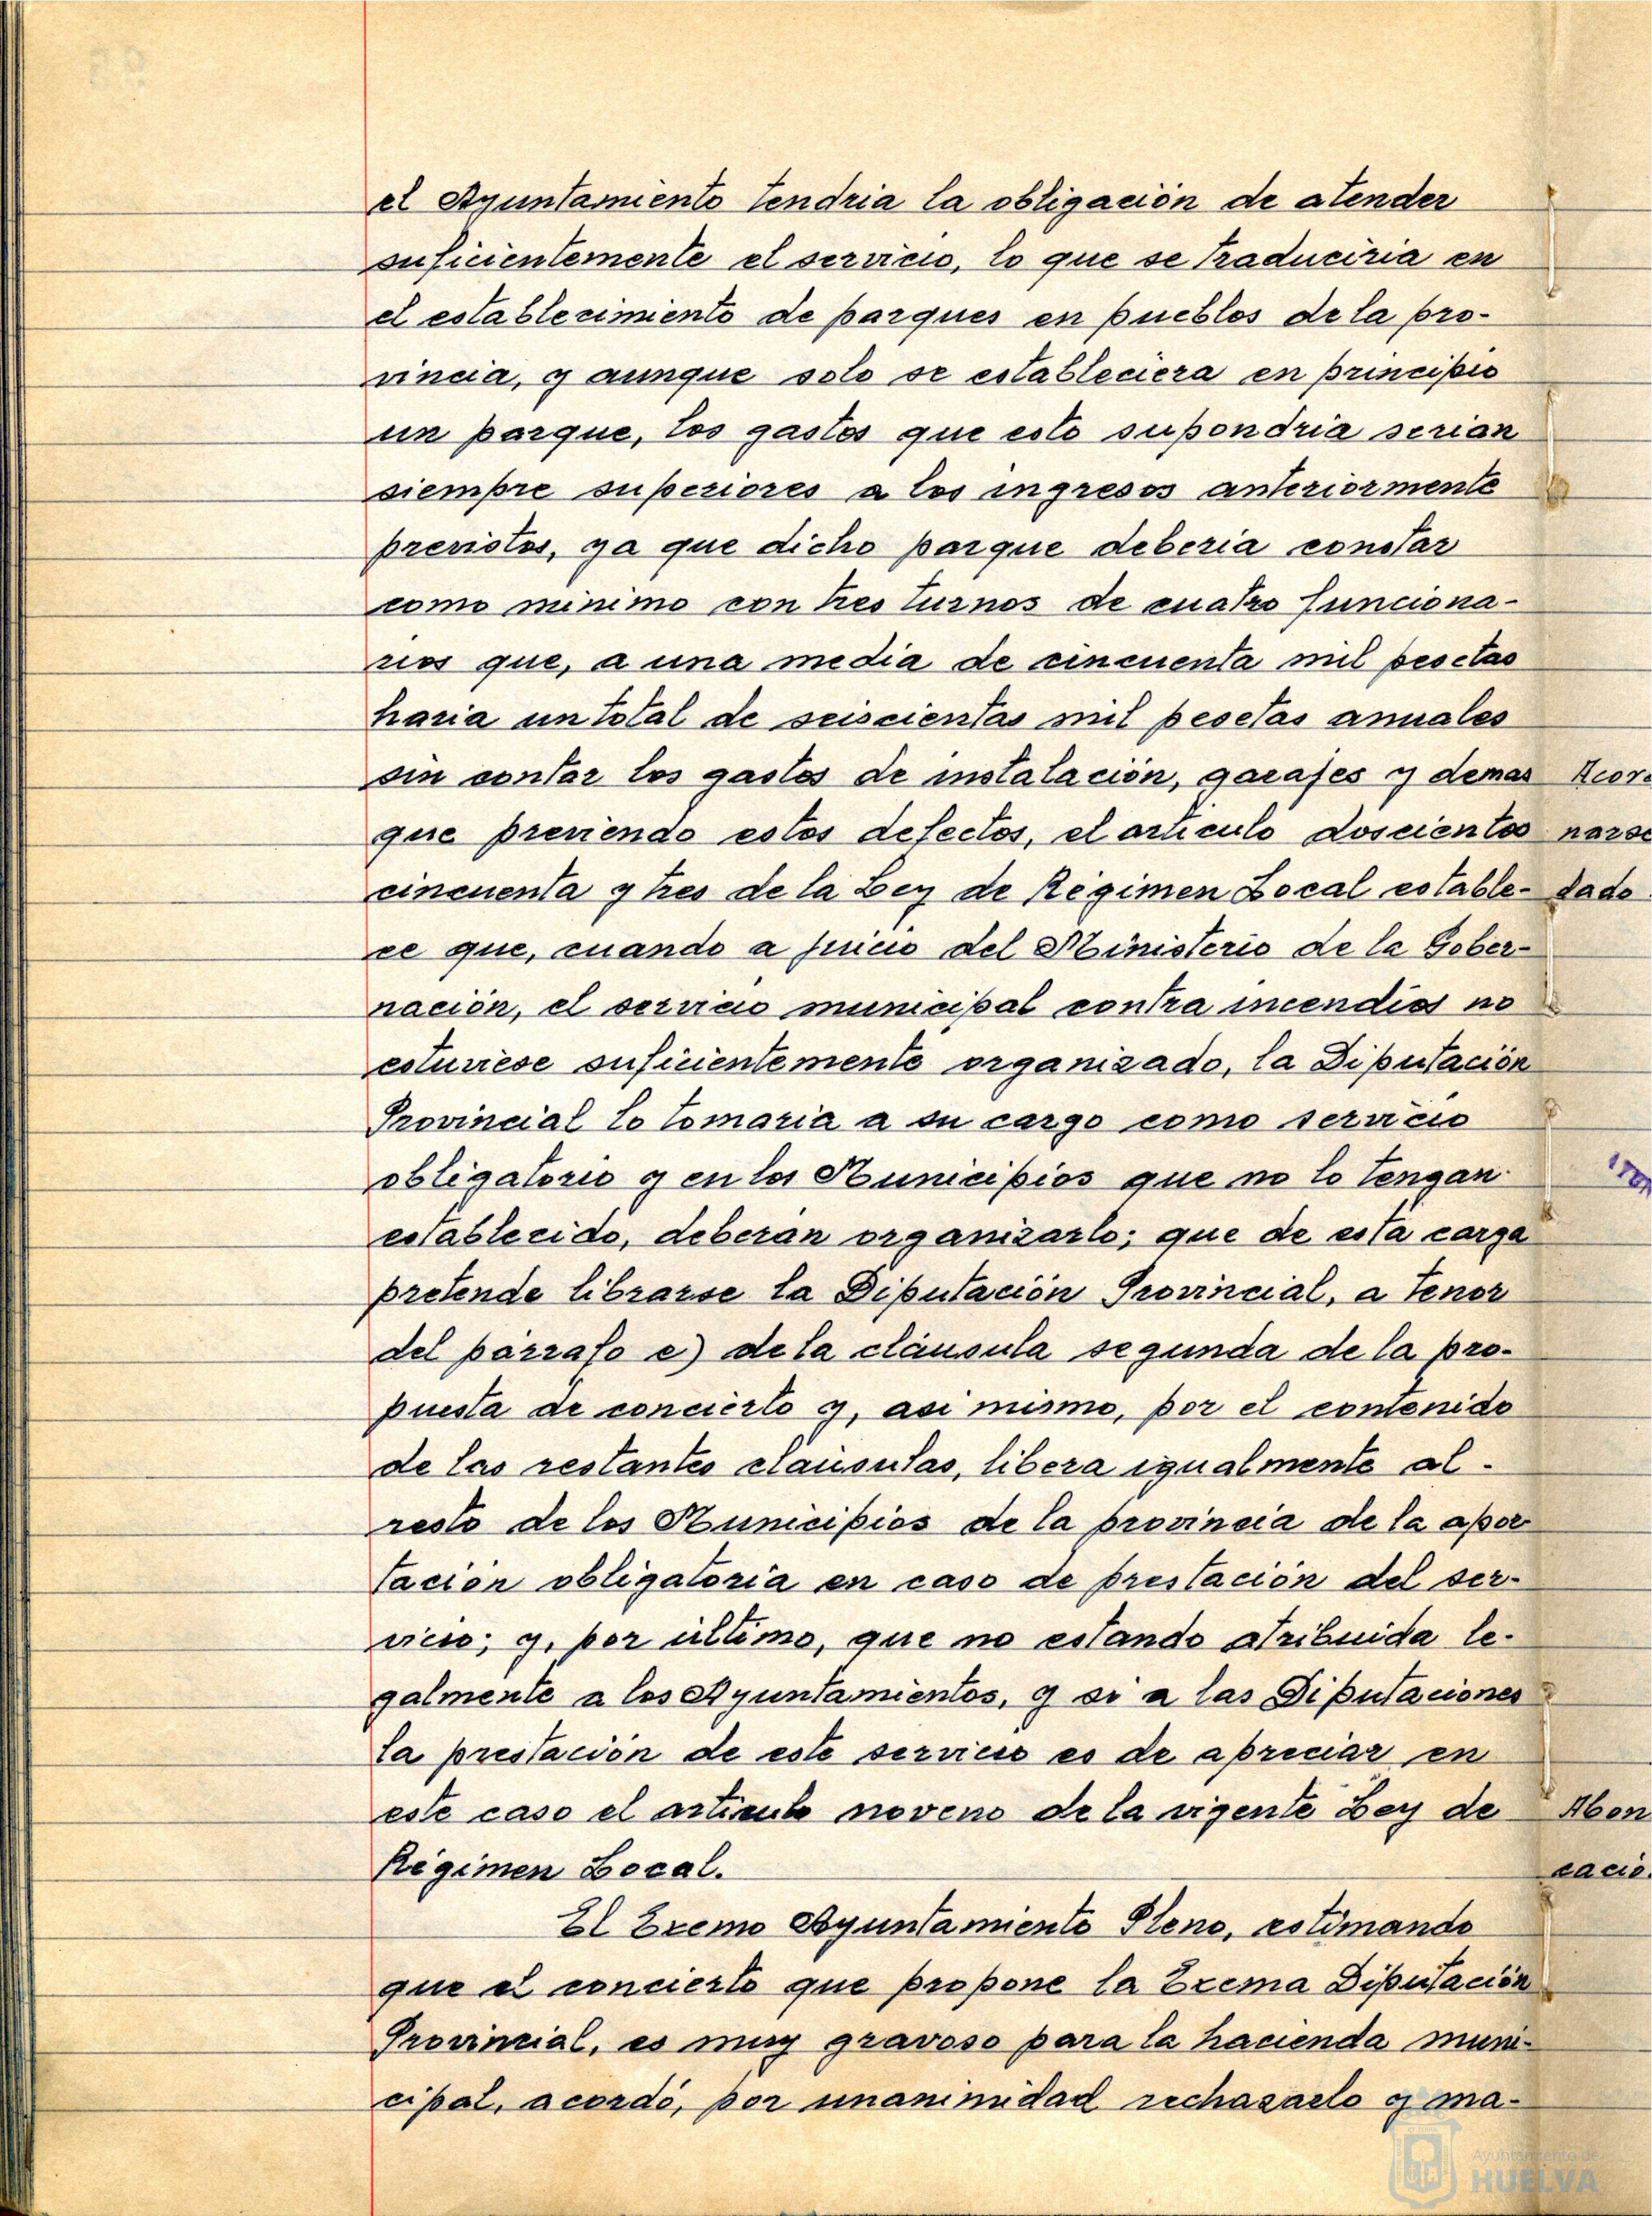 el Ayuntamiento tendria la obligación de atender
suficientemente el servicio, lo que se traduciria en
el establecimiento de parques en pueblos de la pro-
vincia, y aunque solo se estableciera en principio
un parque, los gastos que esto supondria serian
siempre superiores a los ingresos anteriormente
previstos, ya que dicho parque deberia constar
como minimo con tres turnos de cuatro funciona-
rios que, a una media de cincuenta mil pesetas
haria un total de seiscientas mil pesetas anuales
sin contar los gastos de instalación, garajes y demas
que previendo estos defectos, el articulo doscientos
cincuenta y tres de la Ley de Régimen Local estable-
ce que, cuando a juicio del Ministerio de la Gober-
nación, el servicio municipal contra incendios no
estuviese suficientemente organizado, la Diputación
Provincial lo tomaria a su cargo como servicio
obligatorio y en los Municipios que no lo tengan
establecido, deberán organizarlo; que de esta carga
pretende librarse la Diputación Provincial, a tenor
del párrafo e) de la cláusula segunda de la pro-
puesta de concierto y, asi mismo, por el contenido
de las restantes cláusulas, libera igualmente al
resto de los Municipios de la provincia de la apor
tación obligatoria en caso de prestación del ser-
vicio; y, por último, que no estando atribuida le-
galmente a los Ayuntamientos, y si a las Diputaciones
la prestación de este servicio es de apreciar en
este caso el articulo noveno de la vigente Ley de
Régimen Local.
El Excmo Ayuntamiento Pleno, estimando
que el concierto que propone la Excma Diputación
Provincial, es muy gravoso para la hacienda muni-
cipal, acordó, por unanimidad rechazarlo y ma-
Acor
narse
dado
Abon
cacio
Ayuntamiento de
HUELVA